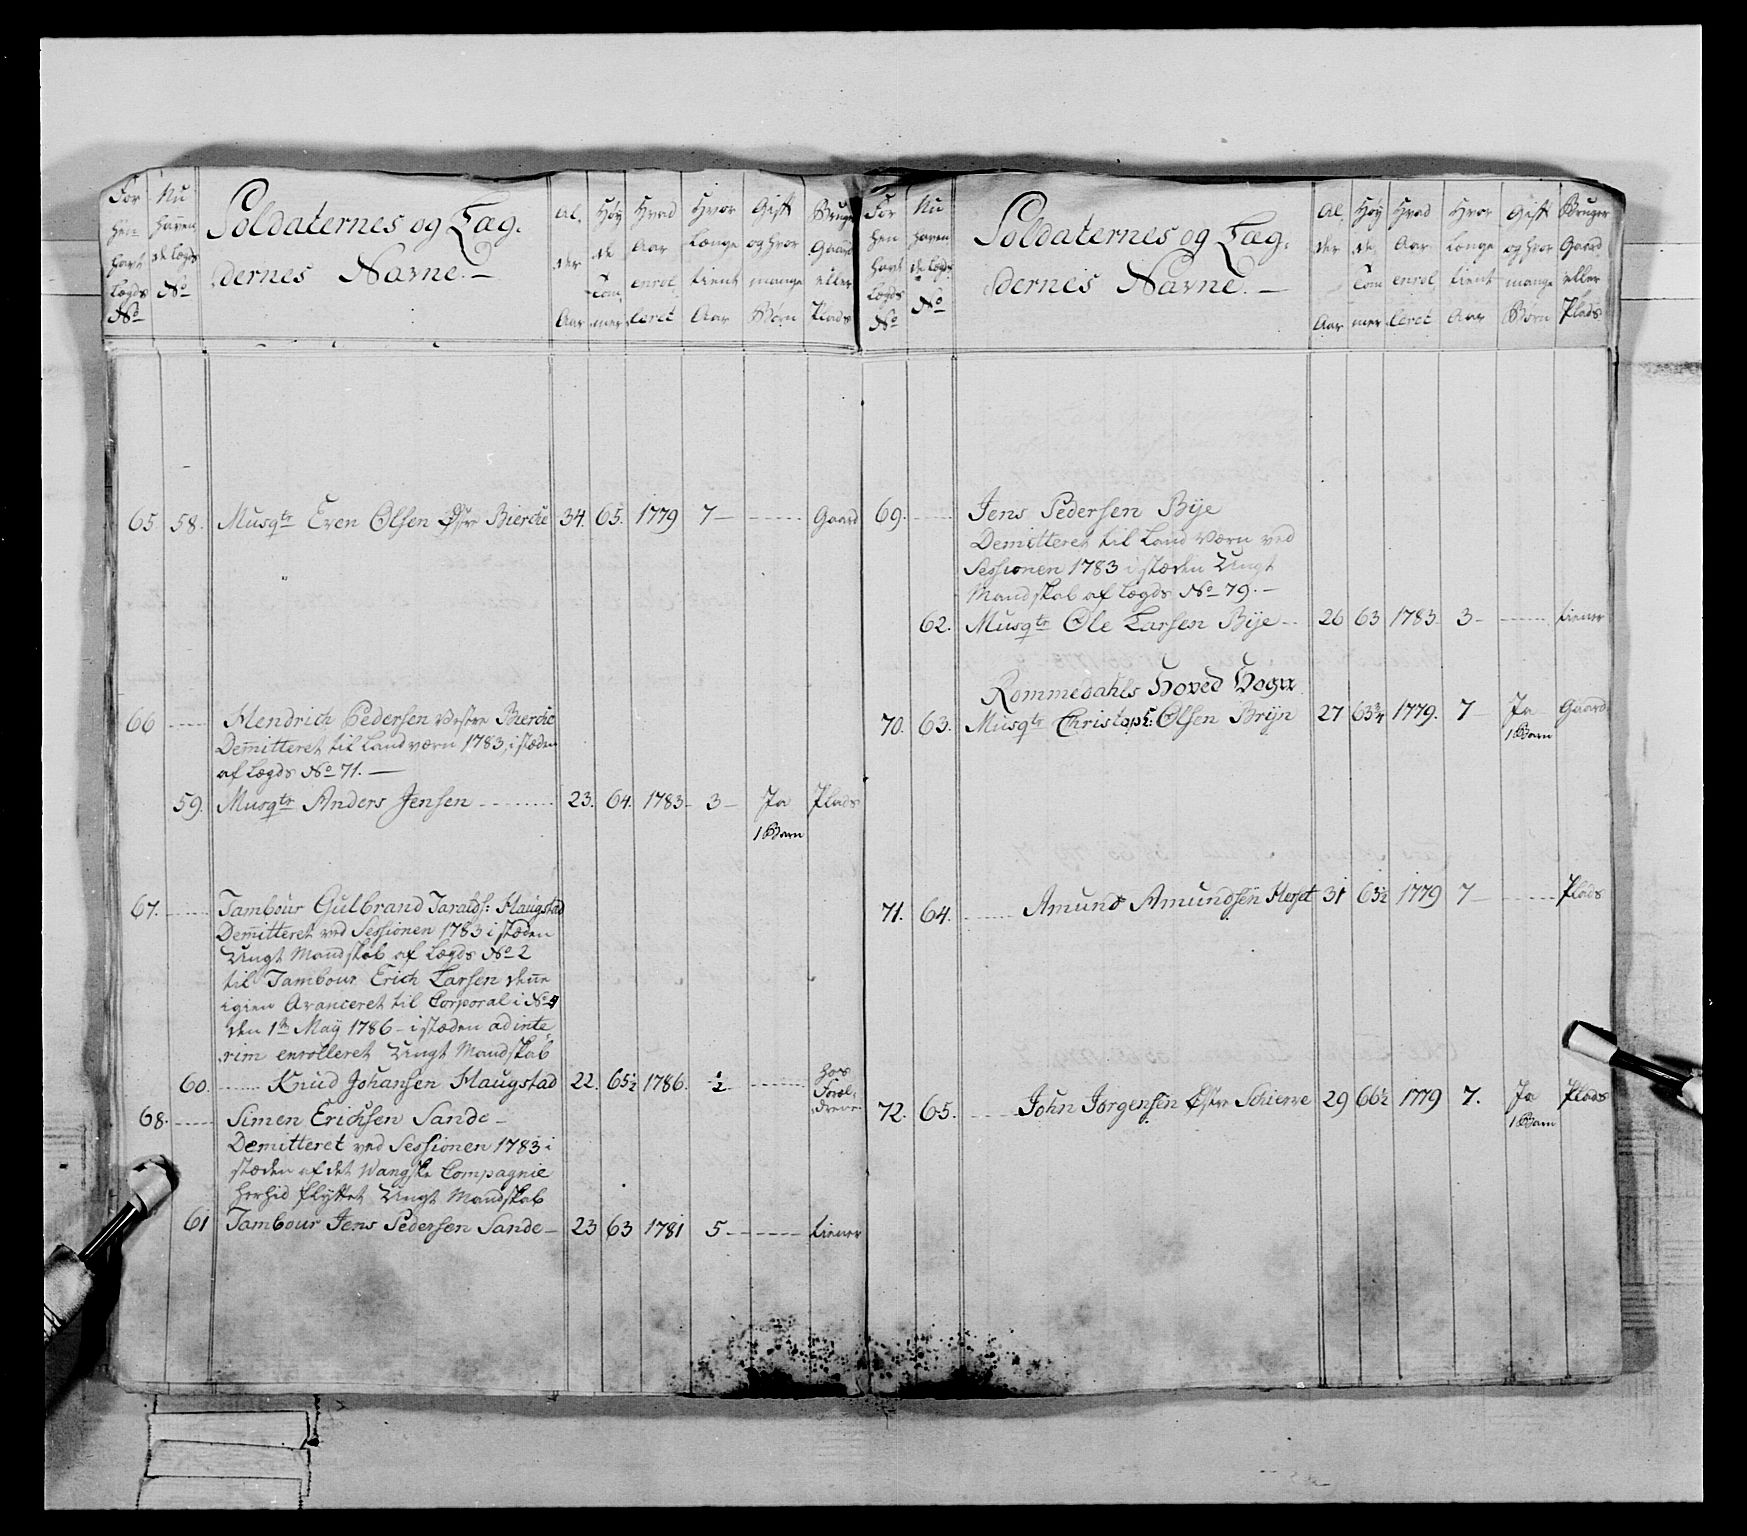 For
hen
havt
Lægds
No
Nu
haven
de Lægds
No
Soldaternes og Læg.
dernes Navne. —
Al.
der
Aar
Høy
de
Tom
mer
Hvad
Aar
enrol
leret
Hvor
Længe
tient
Aar
Gift
og hvor
mange
Børn
Bruger
Gaard
eller
Plads
65 58. Musqtr Even Olsen Østre Bierche 34. 65. 1779 7 — Gaard
66 Hendrich Pedersen Vestre Bierche
Demitteret til Landværn 1783, i stæden
af Lægds No 71. —
59. Musqtr Anders Jensen 23. 64. 1783. 3 — Ja Plads
1 Barn
67. Tambour Gulbrand Taralds: Haugstad
Demitteret ved Sessionen 1783 i stæden
Ungt Mandskab af Lægds No 2
til Tambour Erich Larsen denne
igien Avanceret til Corporal i No 4
den 1te May 1786 – i stæden ad inte
rim enrolleret Ungt Mandskab
60. Knud Johansen Haugstad 22. 65½ 1786. ½ hos
Foræl,
drene
68. Simen Erichsen Sande –
Demitteret ved Sessionen 1783 i
stæden af det Wangske Compagnie
herhid flyttet Ungt Mandskab
61 Tambour Jens Pedersen Sande – 23 63 1781 5 tiener
For
hen
havt
Lægds
No
Nu
haven
de Lægds
No
Soldaternes og Læg.
dernes Navne. —
Al.
der
Aar
Høy
de
Tom
mer
Hvad
Aar
enrol
leret
Hvor
Længe
tient
Aar
Gift
og hvor
mange
Børn
Bruger
Gaard
eller
Plads
69. Jens Pedersen Bye
Demitteret til Land Værn ved
Sessionen 1783 i stæden Ungt
Mandskab af Lægds No 79. —
62. Musqtr Ole Larsen Bye 26 63 1783 3 — tiener
Rommedahls Hoved Sogn
70. 63. Musqtr Christoph: Olsen Bryn 27 63¾ 1779. 7 Ja Gaard
1 Barn
71. 64. Amund Amundsen Herset 31 63½ 1779 7 — Plads
72. 65. John Jørgensen Østre Schierre 29 66½ 1779 7. Ja Plads
1 Barn